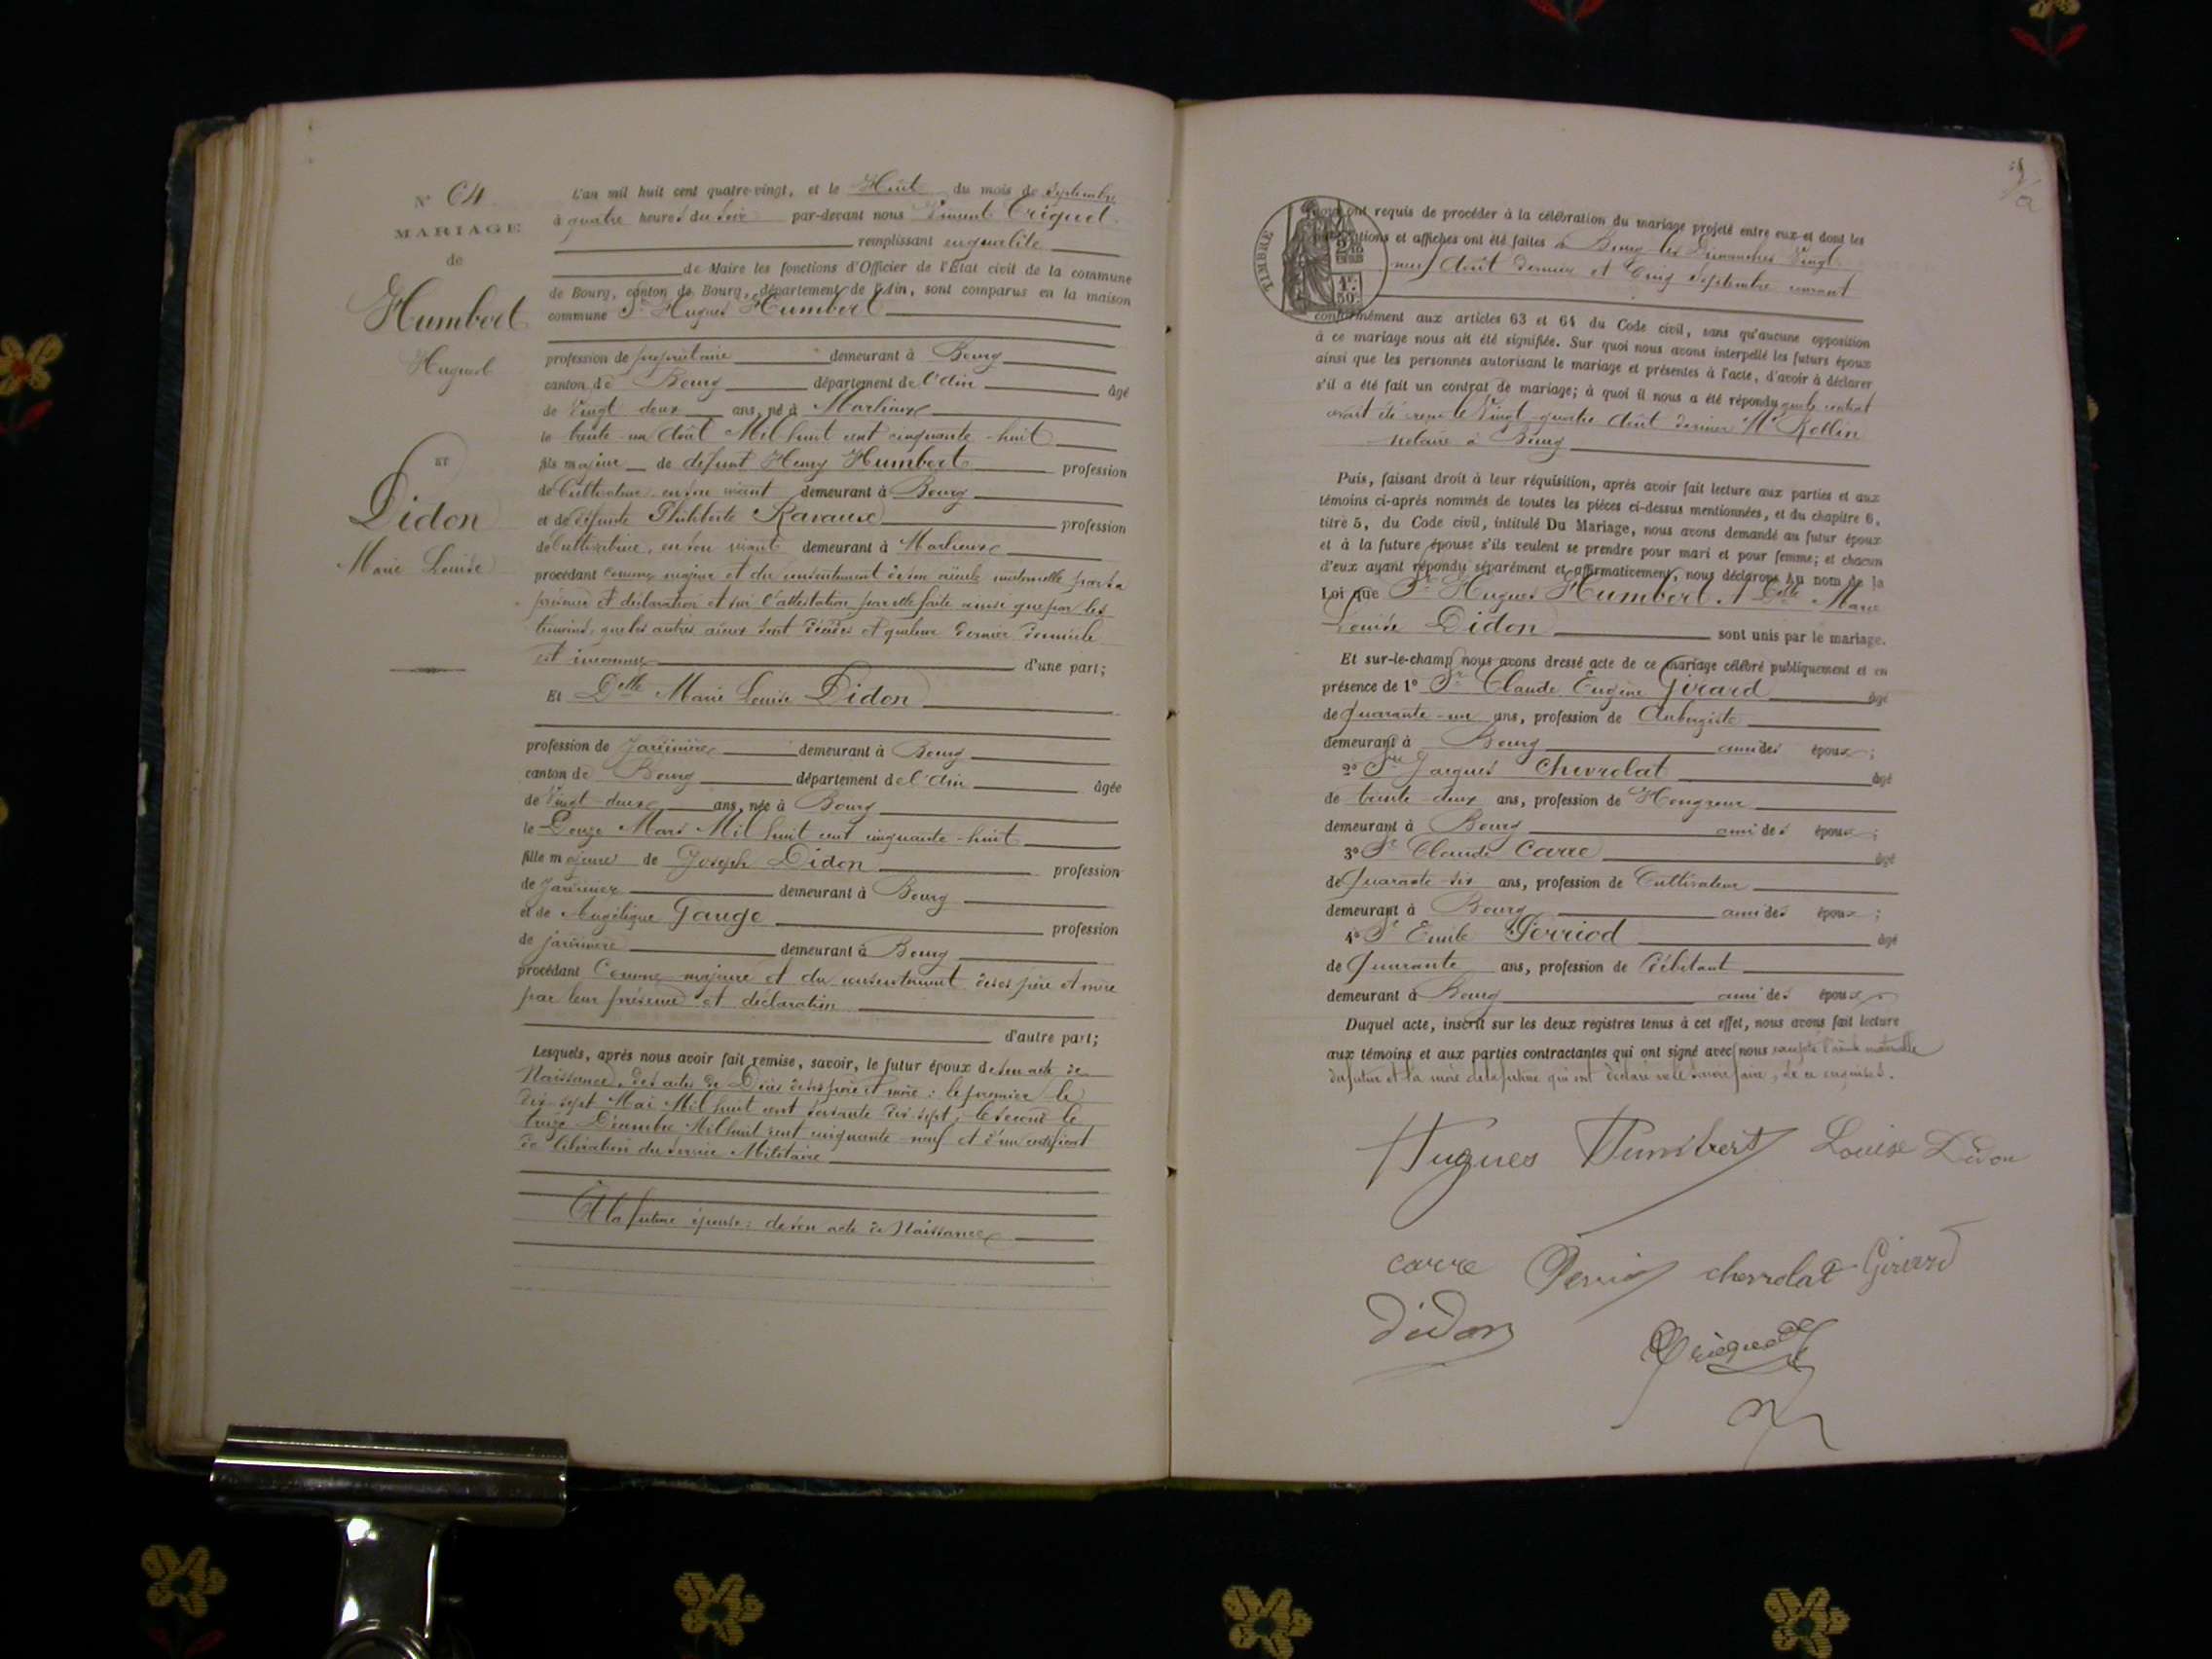 N° 64
MARIAGE
de
Humbert
Hugues
ET
Didon
Marie Louise
L'an mil huit cent quatre-vingt, et le Huit du mois de Septembre
à quatre heures du soir par-devant nous
remplissant en qualité
de Maire les fonctions d'Officier de l'État civil de la commune
de Bourg, canton de Bourg, département de l'Ain, sont comparus en la maison
commune Sr Hugues Humbert
profession de propriétaire demeurant à Bourg
canton de Bourg département de l'Ain âgé
de Vingt deux ans, né à Marlieux
le trente un Août Mil huit cent cinquante-huit
fils majeur de défunt Henry Humbert profession
de Cultivateur en son vivant demeurant à Bourg
et de défunte Philiberte Ravaux profession
de Cultivatrice, en son vivant demeurant à Marlieux
procédant comme majeur et du consentement de son aïeule maternelle par sa
présence et déclaration et sur l'attestation par elle faite ainsi que par les
témoins, que les autres aïeux sont décédés et que leur dernier domicile
est inconnu d'une part;
Et Delle Marie Louise Didon
profession de Jardinière demeurant à Bourg
canton de Bourg département de l'Ain âgée
de Vingt-deux ans, née à Bourg
le Douze Mars Mil huit cent cinquante-huit
fille majeure de Joseph Didon profession
de Jardinier demeurant à Bourg
et de Angélique Gauge profession
de jardinière demeurant à Bourg
procédant Comme majeure et du consentement de ses père et mère
par leur présence et déclaration
d'autre part;
Lesquels, après nous avoir fait remise, savoir, le futur époux de son acte de
Naissance, des actes de Décès de ses père et mère : le premier le
dix-sept Mai Mil huit cent soixante dix-sept; le second le
treize Décembre Mil huit cent cinquante-neuf et d'un certificat
de libération du service Militaire
Et la future épouse : de son acte de Naissance
TIMBRE
nous ont requis de procéder à la célébration du mariage projeté entre eux et dont les
publications et affiches ont été faites à Bourg les Dimanches Vingt
neuf Août dernier et Cinq Septembre courant
conformément aux articles 63 et 64 du Code civil, sans qu'aucune opposition
à ce mariage nous ait été signifiée. Sur quoi nous avons interpellé les futurs époux
ainsi que les personnes autorisant le mariage et présentes à l'acte, d'avoir à déclarer
s'il a été fait un contrat de mariage; à quoi il nous a été répondu que le contrat
avait été reçu le Vingt-quatre Août dernier Me Rollin
Notaire à Bourg
Puis, faisant droit à leur réquisition, après avoir fait lecture aux parties et aux
témoins ci-après nommés de toutes les pièces ci-dessus mentionnées, et du chapitre 6,
titre 5, du Code civil, intitulé Du Mariage, nous avons demandé au futur époux
et à la future épouse s'ils veulent se prendre pour mari et pour femme; et chacun
d'eux ayant répondu séparément et affirmativement, nous déclarons au nom de la
Loi que Sr Hugues Humbert & Delle Marie
Louise Didon sont unis par le mariage.
Et sur-le-champ nous avons dressé acte de ce mariage célébré publiquement et en
présence de 1° Sr Claude Eugène Girard âgé
de Quarante-un ans, profession de Aubergiste
demeurant à Bourg ami des époux;
2° Sr Jacques Chevrolat âgé
de trente-deux ans, profession de Hongreur
demeurant à Bourg ami des époux;
3° Sr Claude Carre âgé
de Quarante-six ans, profession de Cultivateur
demeurant à Bourg ami des époux;
4° Sr Emile Perriod âgé
de Quarante ans, profession de Débitant
demeurant à Bourg ami des époux.
Duquel acte, inscrit sur les deux registres tenus à cet effet, nous avons fait lecture
aux témoins et aux parties contractantes qui ont signé avec nous excepté l'aïeule maternelle
du futur et la mère de la future qui ont déclaré ne le savoir faire, de ce enquises.
Hugues Humbert Louise Didon
carre Perriod chevrolat Girard
didon